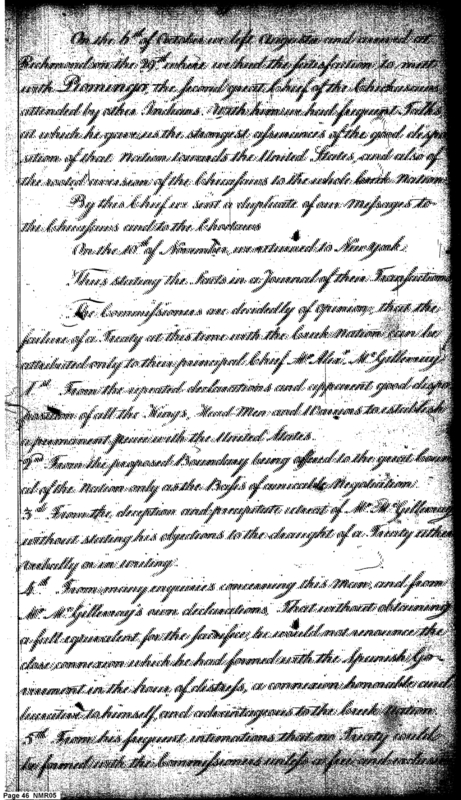 On the 6th of October we left Augusta and arrived at
Richmond on the 29th where we had the satisfaction to meet
with Piomingo, the second great Chief of the Chickasaws
attended by other Indians. With him we had frequent Talks
at which he gave us the strongest assurances of the good dispo-
sition of that Nation towards the United States, and also of
the rooted aversion of the Chicasaws to the whole Creek Nation
By this Chief we sent a duplicate of our Messages to
the Chicasaws and to the Choctaws
On the 10th of November, we returned to New York
Thus stating the Facts in a Journal of their Transactions
The Commissioners are decidedly of opinion, that the
failure of a Treaty at this time with the Creek Nation can be
attributed only to their principal Chief Mr. Alexr. McGillivray
1st From the repeated declarations and apparent good dispo-
position of all the Kings, Head Men and Warriors to establish
a permanent peace with the United States.
2nd From the proposed Boundary being offered to the great Coun-
cil of the Nation only as the Basis of amicable Negotiation
3d From the deception and precipitate retreat of Mr. McGillivray
without stating his objections to the draught of a Treaty either
verbally or in writing
4th From many enquiries concerning this Man, and from
Mr. McGillivray's own declarations, That without obtaining
a full equivalent for the sacrifice, he would not renounce the
close connexion which he had formed with the Spanish Go-
vernment in the hour of distress, a connexion honorable and
lucrative to himself, and advantageous to the Creek Nation
5th From his frequent intimations that no Treaty could
be formed with the Commissioners unless a free and exclusive
Page 46 NMR05